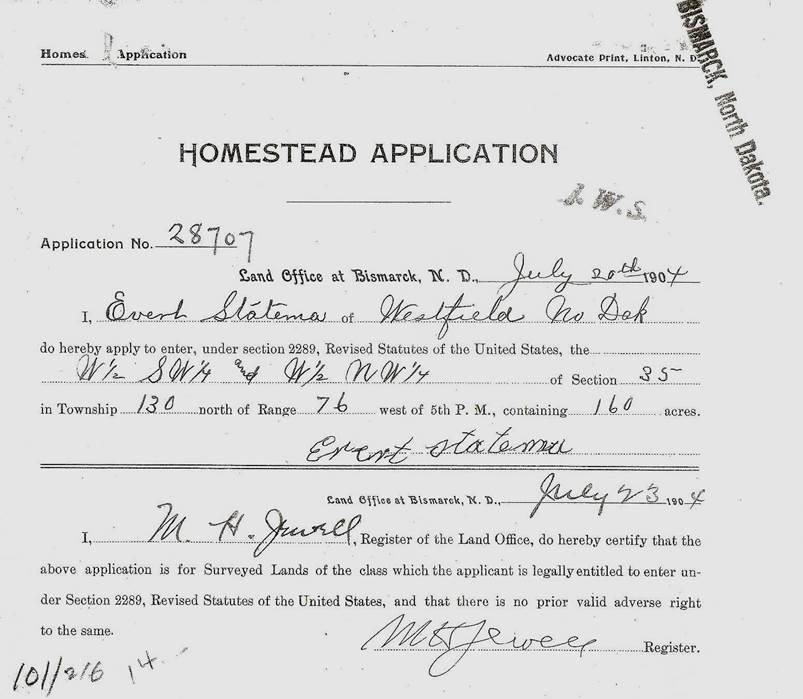 Homes Application
Advocate Print, Linton, N. D.
BISMARCK, North Dakota.
HOMESTEAD APPLICATION
J. W. S.
Application No. 28707
Land Office at Bismarck, N. D., July 20th 1904
I, Evert Statema of Westfield No Dak
do hereby apply to enter, under section 2289, Revised Statutes of the United States, the
W 1/2 SW 1/4 and W 1/2 NW 1/4 of Section 35
in Township 130 north of Range 76 west of 5th P. M., containing 160 acres.
Evert Statema
Land Office at Bismarck, N. D., July 23 1904
I, M. H. Jewell, Register of the Land Office, do hereby certify that the
above application is for Surveyed Lands of the class which the applicant is legally entitled to enter un-
der Section 2289, Revised Statutes of the United States, and that there is no prior valid adverse right
to the same.
M H Jewell Register.
101/216 14